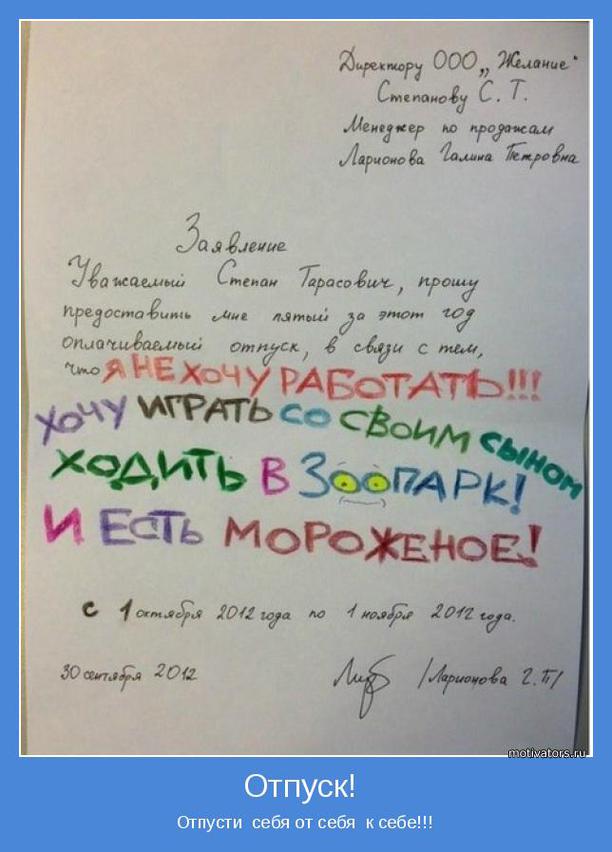 Директору ООО „Желание"
Степанову С. Т.
Менеджер по продажам
Ларионова Галина Петровна
Заявление
Уважаемый Степан Тарасович, прошу
предоставить мне пятый за этот год
оплачиваемый отпуск, в связи с тем,
что Я НЕ ХОЧУ РАБОТАТЬ!!!
ХОЧУ ИГРАТЬ СО СВОИМ СЫНОМ
ХОДИТЬ В ЗООПАРК!
И ЕСТЬ МОРОЖЕНОЕ!
с 1 октября 2012 года по 1 ноября 2012 года.
30 сентября 2012 /Ларионова Г. П/
motivators.ru
Отпуск!
Отпусти себя от себя к себе!!!